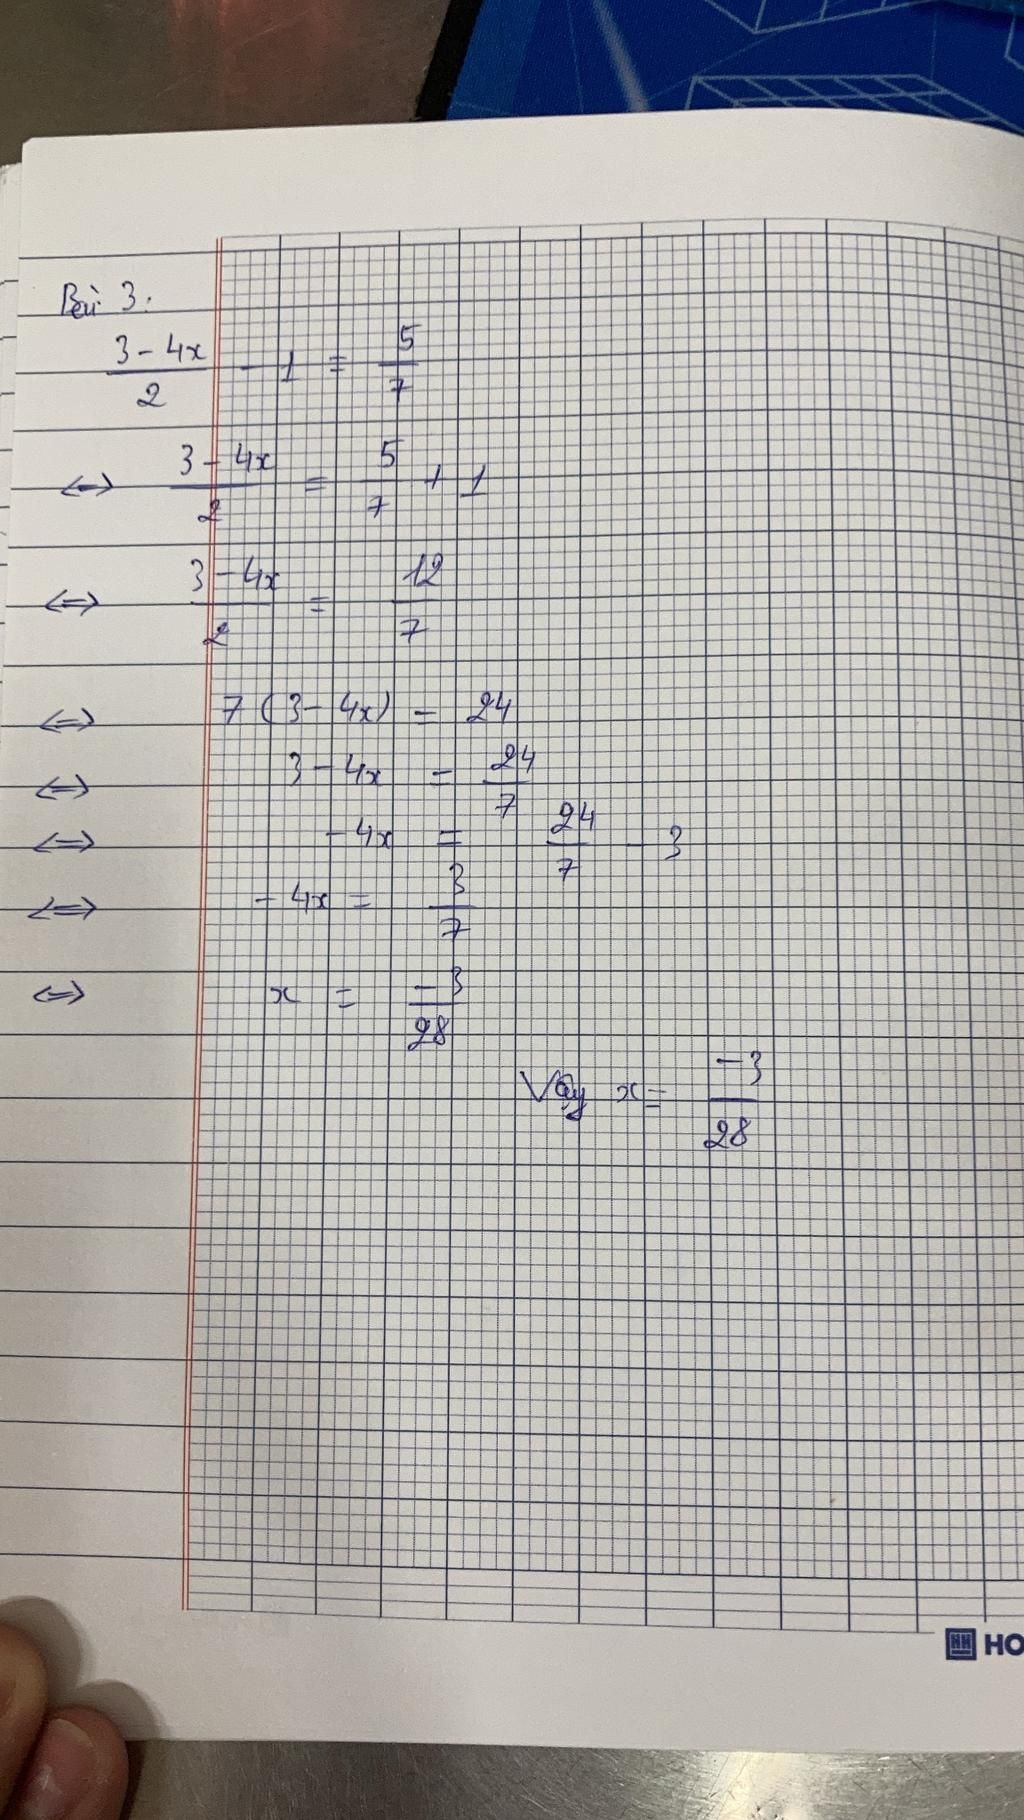 Bài 3.
3 - 4x / 2 - 1 = 5/7
⇔ 3 - 4x / 2 = 5/7 + 1
⇔ 3 - 4x / 2 = 12/7
⇔ 7 (3 - 4x) = 24
⇔ 3 - 4x = 24/7
⇔ - 4x = 24/7 - 3
⇔ - 4x = 3/7
⇔ x = -3/28
Vậy x = -3/28
HO